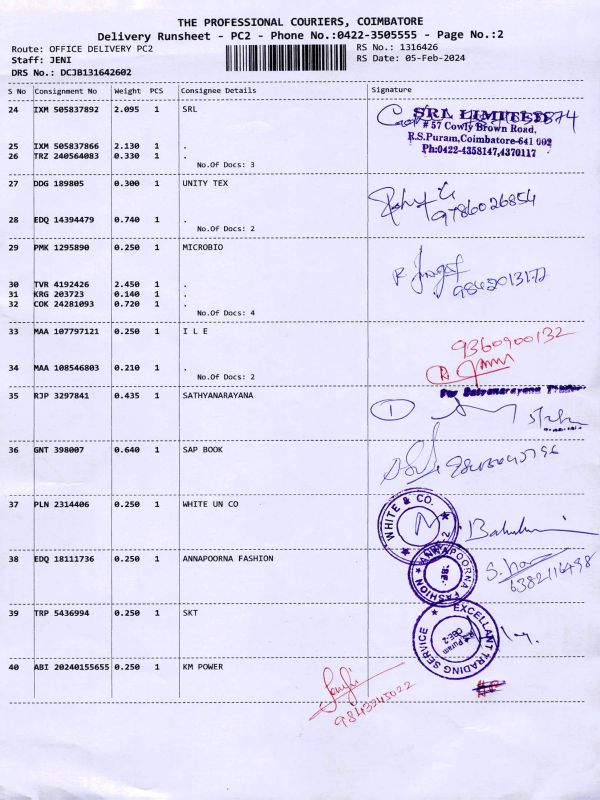 THE PROFESSIONAL COURIERS, COIMBATORE
Delivery Runsheet - PC2 - Phone No.:0422-3505555 - Page No.:2
Route: OFFICE DELIVERY PC2 RS No.: 1316426
Staff: JENI RS Date: 05-Feb-2024
DRS No.: DCJB131642602
S No Consignment No Weight PCS Consignee Details Signature
24 IXM 505837892 2.095 1 SRL
SRL LIMITED
# 57 Cowly Brown Road,
R.S.Puram,Coimbatore-641 002
Ph:0422-4358147,4370117
25 IXM 505837866 2.130 1 .
26 TRZ 240564083 0.330 1 .
No.Of Docs: 3
27 DDG 189805 0.300 1 UNITY TEX
9786026854
28 EDQ 14394479 0.740 1 .
No.Of Docs: 2
29 PMK 1295890 0.250 1 MICROBIO
30 TVR 4192426 2.450 1 .
31 KRG 203723 0.140 1 .
32 COK 24281093 0.720 1 .
No.Of Docs: 4
33 MAA 107797121 0.250 1 I L E
9360900132
34 MAA 108546803 0.210 1 .
No.Of Docs: 2
35 RJP 3297841 0.435 1 SATHYANARAYANA
1
36 GNT 398007 0.640 1 SAP BOOK
37 PLN 2314406 0.250 1 WHITE UN CO
WHITE & CO.
38 EDQ 18111736 0.250 1 ANNAPOORNA FASHION
ANNAPOORNA FASHION
6382116498
39 TRP 5436994 0.250 1 SKT
EXCELLANT TRADING SERVICE
R.S. Puram
CBE-2
40 ABI 20240155655 0.250 1 KM POWER
9843245022